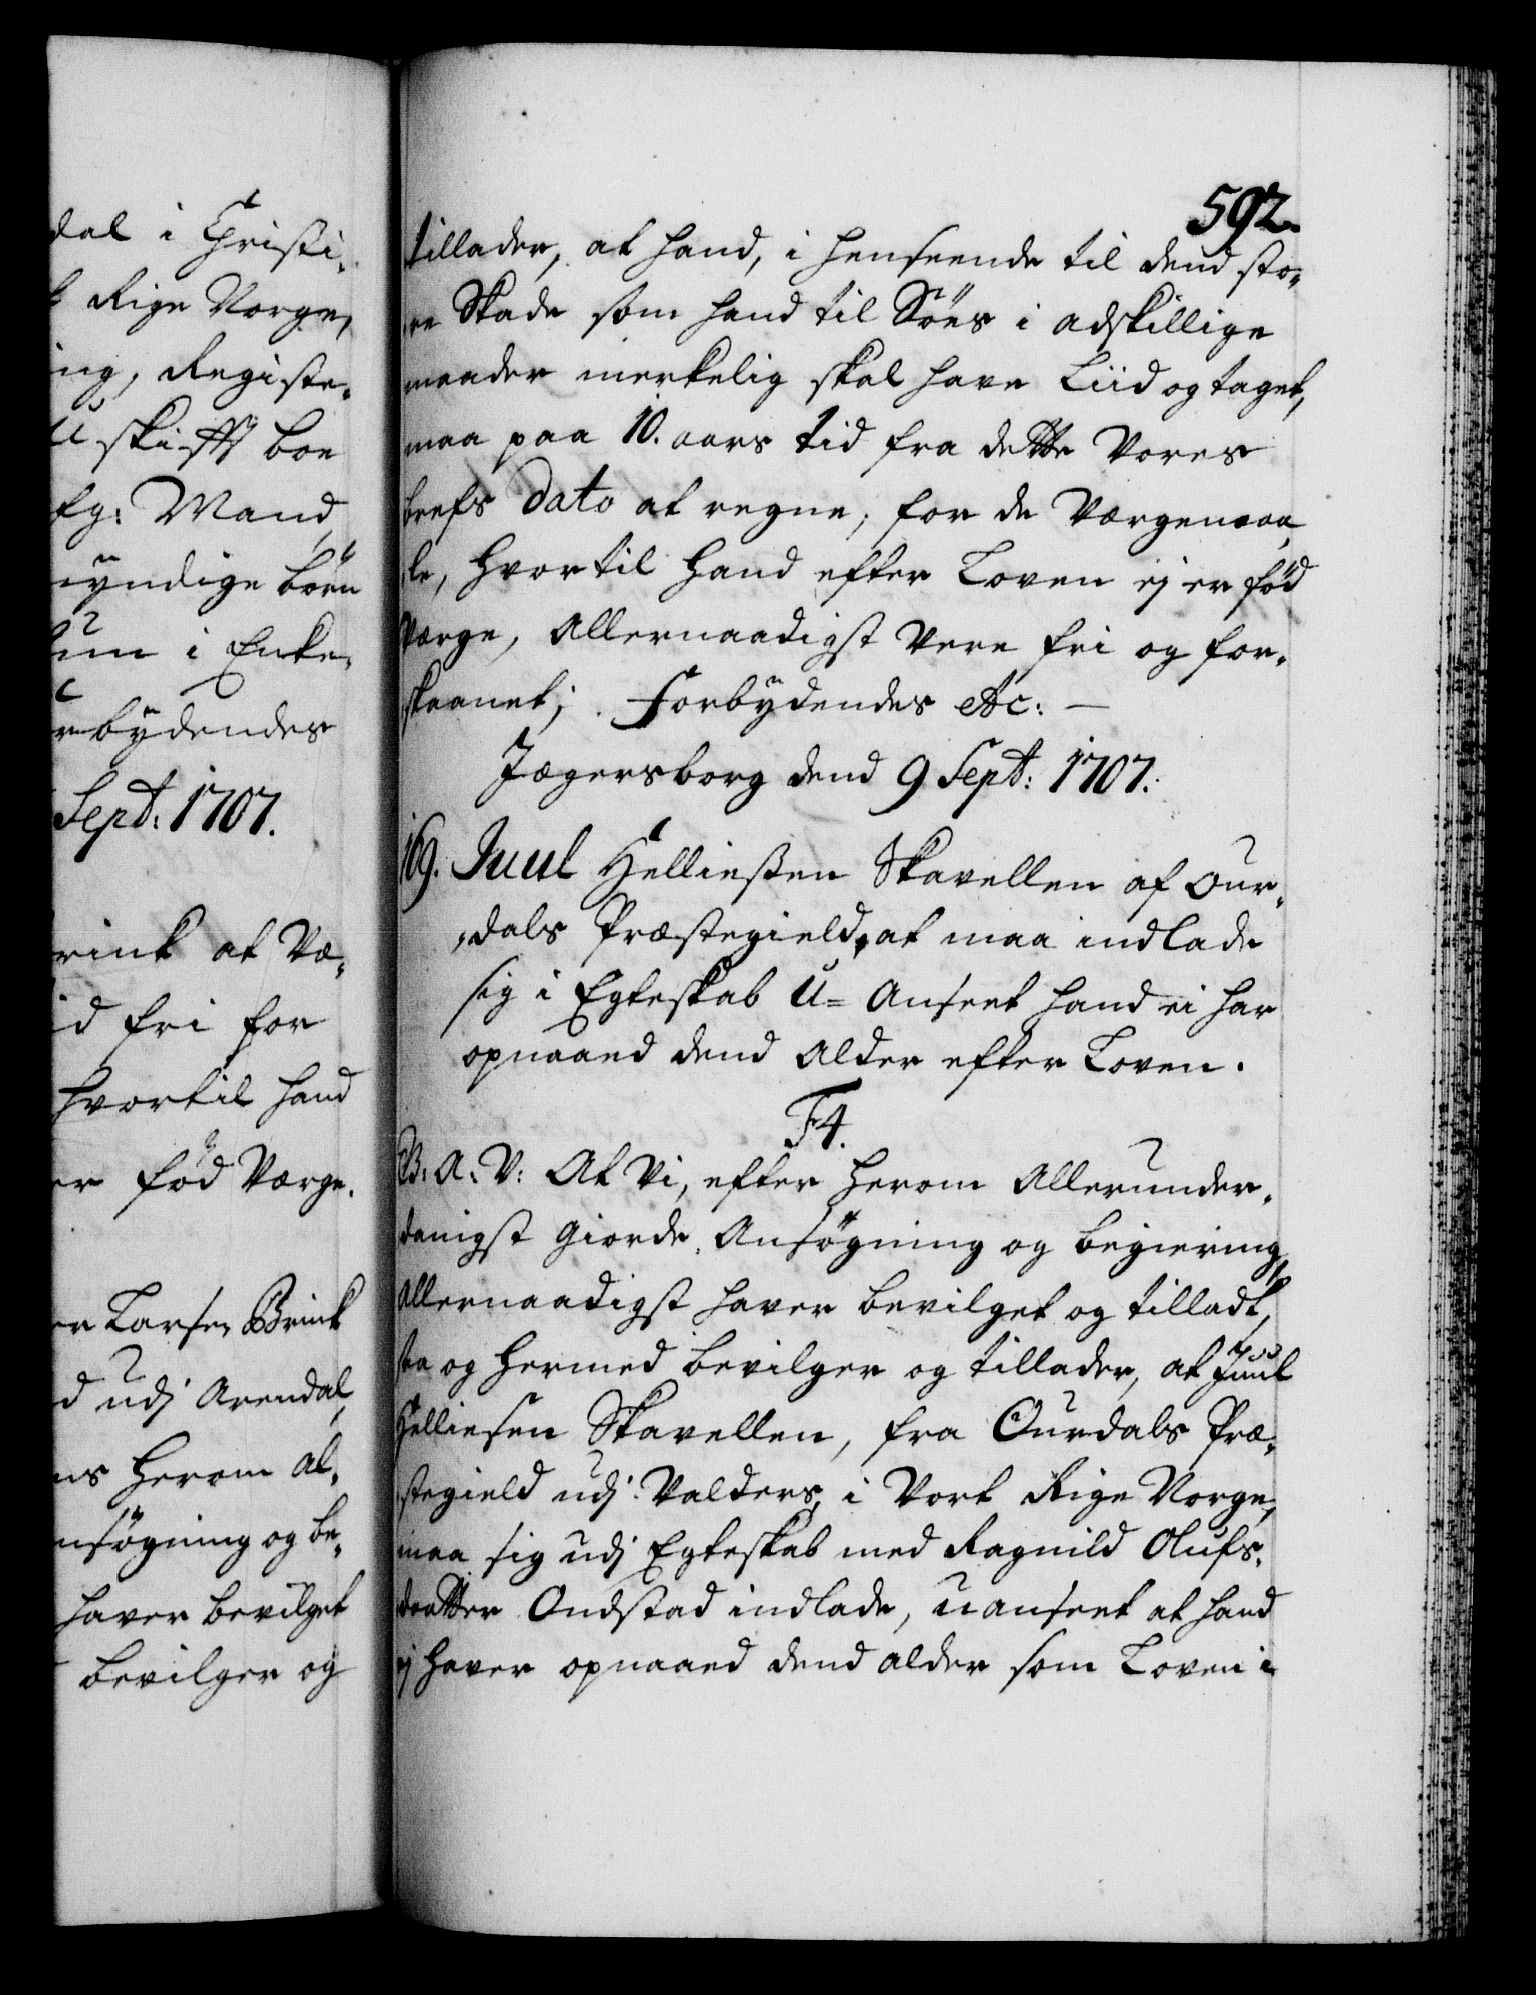 dal i Christi-
Rige Norge,
ing, Registe-
U skifft boe
fg: Mand,
myndige børn
um i Enke-
rbydendes
Sept: 1707.
rink at Væ-
id fri for
hvortil hand
er fød Værge.
er Larsen Brink
d udj Arendal,
ns herom al-
nsøgning og be-
haver bevilget
bevilger og
592.
tillader, at hand, i henseende til dend sto-
re Skade som hand til Söes i adskillige
maader merkelig skal have Liid og taget,
maa paa 10. aars tid fra dette Vores
brefs Dato at regne, for de Værgemaa-
le, hvortil hand efter Loven ej er fød
Værge, Allernaadigst være fri og for-
skaanet; Forbydendes etc: —
Jægersborg dend 9 Sept: 1707.
169. Juul Helliesen Skavellen af Our-
dals Præstegield, at maa indlade
sig i Egteskab U= anseet hand ei har
opnaaed dend Alder efter Loven.
F4.
G: A: V: At Vi, efter herom Allerunder-
danigst giorde Ansøgning og begiering,
Allernaadigst haver bevilget og tilladt,
saa og hermed bevilger og tillader, at Juul
Helliesen Skavellen, fra Ourdals Præ-
stegield udj Valders, i Vort Rige Norge,
maa sig udj Egteskab med Ragnild Olufs-
daatter Ondstad indlade, uanseet at hand
ej haver opnaaed dend alder som Loven i-